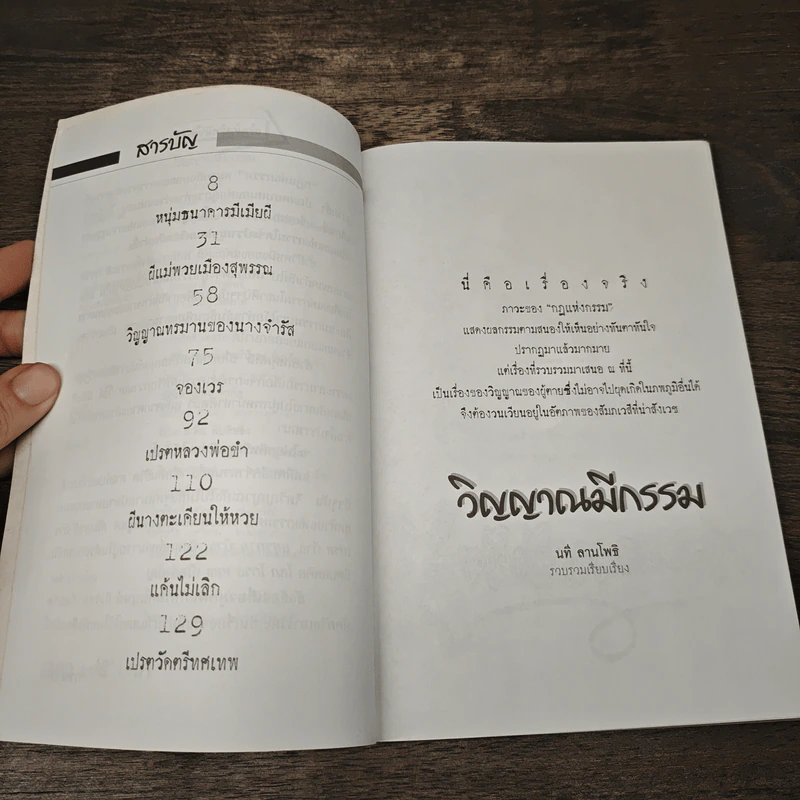 สารบัญ
8
หนุ่มธนาคารมีเมียผี
31
ผีแม่พวยเมืองสุพรรณ
58
วิญญาณทรมานของนางจำรัส
75
จองเวร
92
เปรตหลวงพ่อขำ
110
ผีนางตะเคียนให้หวย
122
แค้นไม่เลิก
129
เปรตวัดตรีทศเทพ
นี่ คื อ เ รื่ อ ง จ ริ ง
ภาวะของ "กฎแห่งกรรม"
แสดงผลกรรมตามสนองให้เห็นอย่างทันตาทันใจ
ปรากฏมาแล้วมากมาย
แต่เรื่องที่รวบรวมมาเสนอ ณ ที่นี้
เป็นเรื่องของวิญญาณของผู้ตายซึ่งไม่อาจไปผุดเกิดในภพภูมิอื่นได้
จึงต้องวนเวียนอยู่ในอัตภาพของสัมภเวสีที่น่าสังเวช
วิญญาณมีกรรม
นที ลานโพธิ
รวบรวมเรียบเรียง